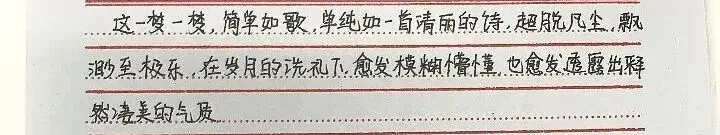 这一梦一梦,简单如歌,单纯如一首清丽的诗,超脱凡尘,飘
渺至极乐,在岁月的洗礼下,愈发模糊懵懂,也愈发透露出释
然凄美的气质